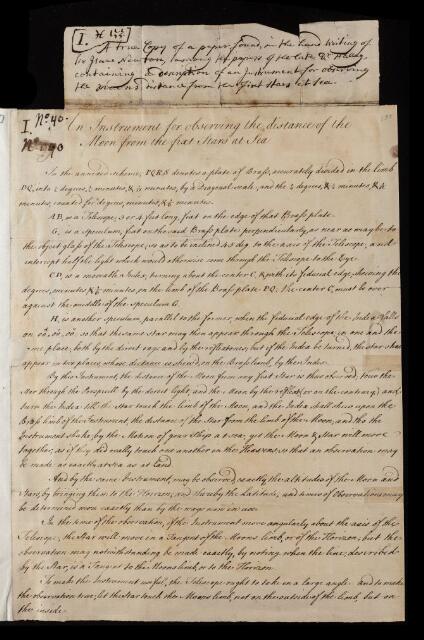 I.
A true Copy of a paper found, in the hand Writing of
Sir Isaac Newton, among the papers of the late Dr Halley
containing a description of an Instrument for observing
the Moon's distance from the Fixt Stars at Sea.
I. No. 40.
No. 90
An Instrument for observing the distance of the
Moon from the fixt Stars at Sea
In the annexed scheme, PQRS denotes a plate of Brass, accurately divided in the limb
DQ, into ½ degrees, ½ minutes, & 1/12 minutes, by a Diagonal scale; and the ½ degrees, & ½ minutes, & 1/12
minutes, counted for degrees, minutes, & 1/6 minutes.
AB, is a Telescope, 3 or 4 feet long, fixt on the edge of that Brass plate.
G, is a speculum, fixt on the said Brass plate perpendicularly, as near as may be to
the object glass of the Telescope, so as to be inclined 45 deg. to the axis of the Telescope, and
intercept half the light which would otherwise come through the Telescope to the Eye.
CD, is a moveable Index, turning about the center C, & with its fiducial edge, shewing the
degrees, minutes, & 1/6 minutes, on the limb of the Brass plate PQ; the center C, must be over
against the middle of the speculum G.
H, is another speculum, parallel to the former, when the fiducial edge of the Index falls
on 00° 00' 00"; so that the same star may then appear through the Telescope, in one and the
same place, both by the direct rays and by the reflex'd ones; but if the Index be turned, the star shall
appear in two places, whose distance is shewed, on the Brass limb, by the Index.
By this Instrument, the distance of the Moon from any fixt Star is thus observed; view the
Star through the Perspicill by the direct light, and the Moon by the reflext, (or on the contrary;) and
turn the Index till the Star touch the limb of the Moon, and the Index shall shew upon the
Brass limb of the Instrument, the distance of the Star from the limb of the Moon; and tho the
Instrument shake, by the Motion of your Ship at sea, yet the Moon & Star will move
together, as if they did really touch one another in the Heavens; so that an observation may
be made as exactly at sea as at land.
And by the same Instrument, may be observed, exactly, the altitudes of the Moon and
Stars, by bringing them to the Horizon; and thereby the Latitude, and times of Observations may
be determined more exactly than by the ways now in use.
In the time of the observation, if the Instrument move angularly about the axis of the
Telescope, the Star will move in a Tangent of the Moons limb, or of the Horizon; but the
observation may notwithstanding be made exactly, by noting when the line, described
by the Star, is a Tangent to the Moons limb, or to the Horizon.
To make the Instrument useful, the Telescope ought to take in a large angle: and to make
the observation true, let the Star touch the Moons limb, not on the outside of the limb, but on
the inside.